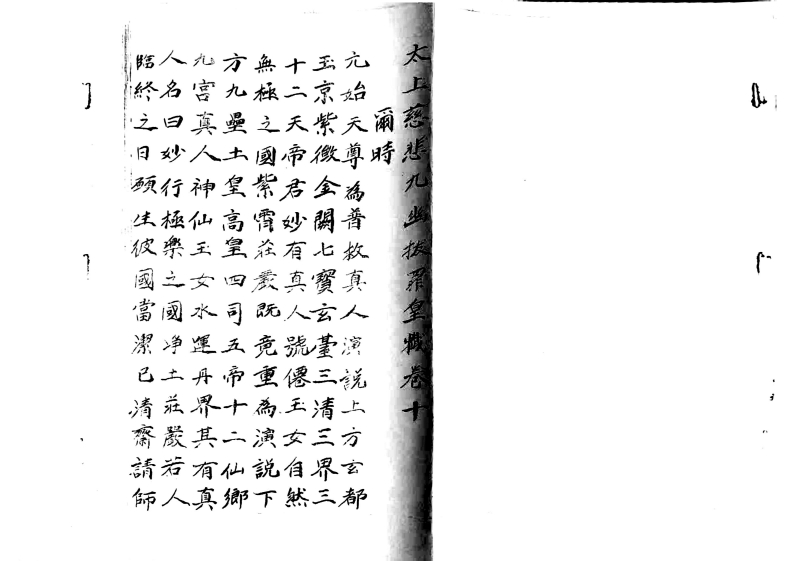 太上慈悲九幽拔罪皇懺卷十
爾時
元始天尊為普救真人演說上方玄都
玉京紫微金闕七寶玄臺三清三界三
十二天帝君妙有真人號僊玉女自然
無極之國紫霄莊嚴既竟重為演說下
方九壘土皇高皇四司五帝十二仙鄉
九宮真人神仙玉女水運丹界其有真
人名曰妙行極樂之國净土莊嚴若人
臨終之日願生彼國當潔已清齋請師